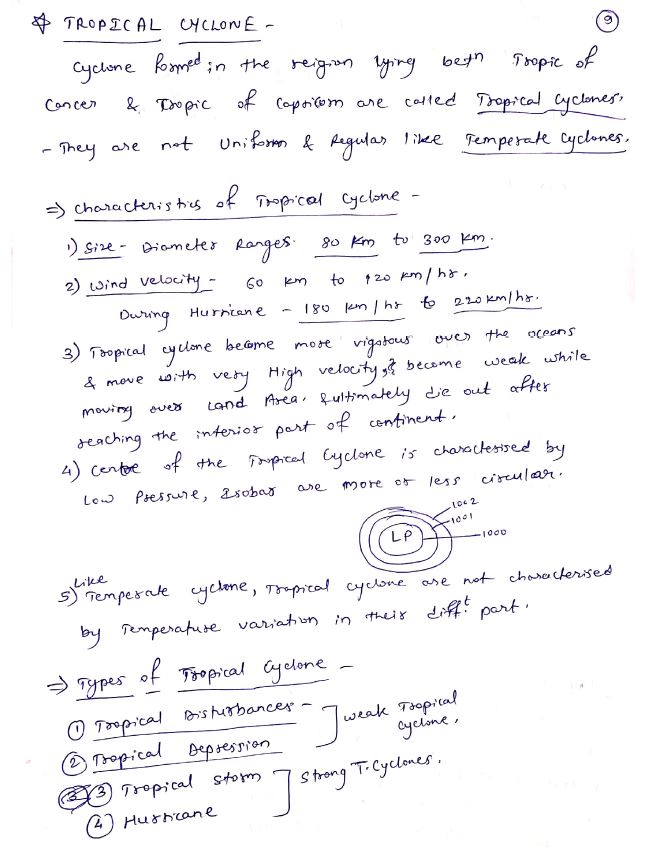 ☆ TROPICAL CYCLONE - 9
Cyclone formed in the reigion lying betn Tropic of
Cancer & Tropic of Capricorn are called Tropical Cyclones.
- They are not Uniform & Regular like Temperate Cyclones.
⇒ Characteristics of Tropical Cyclone -
1) Size - Diameter Ranges. 80 Km to 300 Km.
2) Wind Velocity - 60 km to 120 km/hr.
During Hurricane - 180 km/hr to 220 km/hr.
3) Tropical cyclone become more vigorous over the oceans
& move with very High velocity, & become weak while
moving over Land Area. & ultimately die out after
reaching the interior part of continent.
4) Centre of the Tropical Cyclone is characterised by
Low Pressure, Isobar are more or less circular.
1002
1001
LP 1000
Like
5) Temperate cyclone, Tropical cyclone are not characterised
by Temperature variation in their difft. part.
⇒ Types of Tropical Cyclone -
① Tropical Disturbances - weak Tropical
cyclone.
② Tropical Depression
③ Tropical storm Strong T. Cyclones.
④ Hurricane